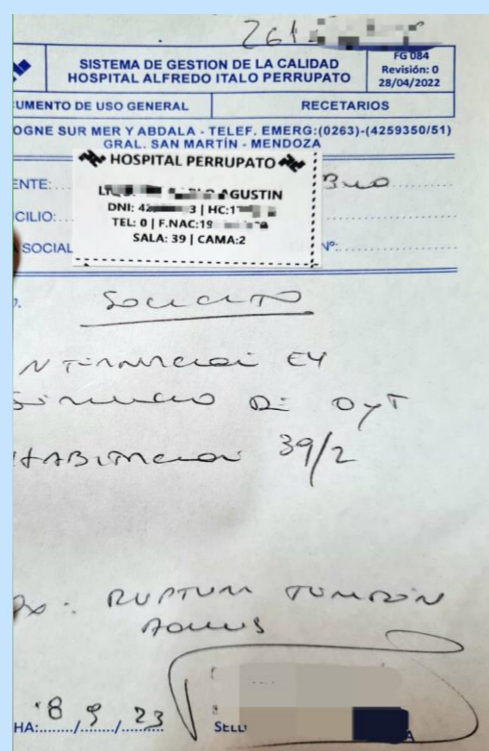 261
SISTEMA DE GESTION DE LA CALIDAD
HOSPITAL ALFREDO ITALO PERRUPATO
FG 084
Revisión: 0
28/04/2022
UMENTO DE USO GENERAL
RECETARIOS
OGNE SUR MER Y ABDALA - TELEF. EMERG:(0263)-(4259350/51)
GRAL. SAN MARTÍN - MENDOZA
HOSPITAL PERRUPATO
ENTE:
AGUSTIN
DNI: 42 3 | HC:1
CILIO:
TEL: 0 | F.NAC:19
SOCIAL
SALA: 39 | CAMA:2
Nº:
SOLICITO
INTERNACION EN
SERVICIO DE OyT
HABITACION 39/2
Dx: RUPTURA TENDON
AQUILES
HA: 8/9/23
SELL